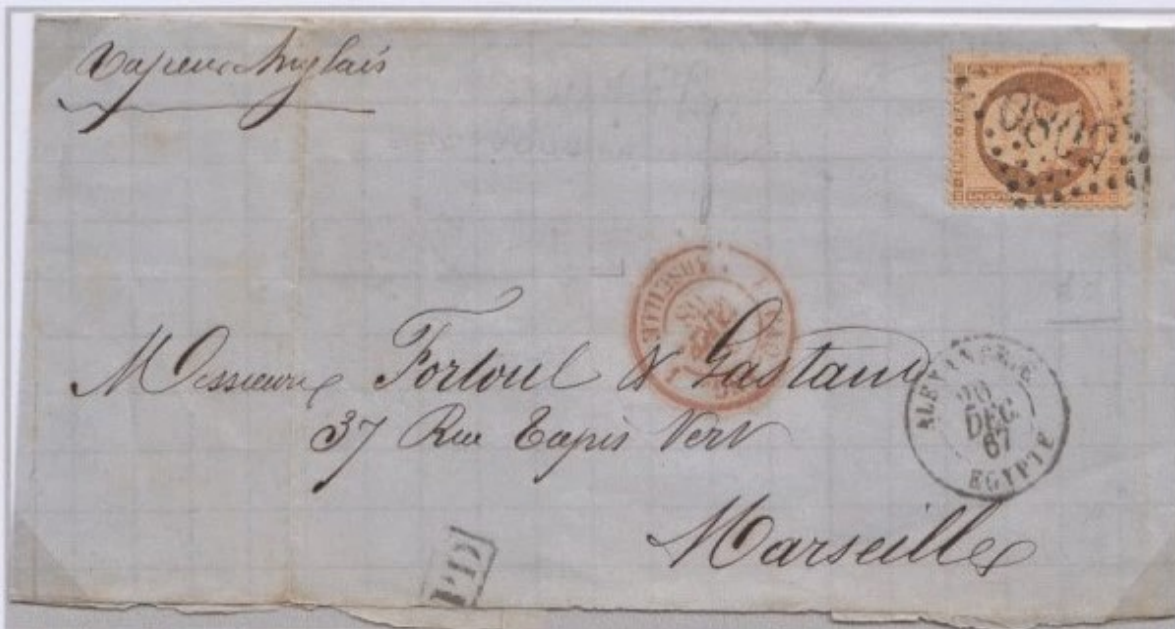 Vapeur Anglais
5080
MARSEILLE
Messieurs Fortoul & Gastaud
37 Rue Tapis Vert
Marseille
ALEXANDRIE
DEC.
67
EGYPTE
P.D.